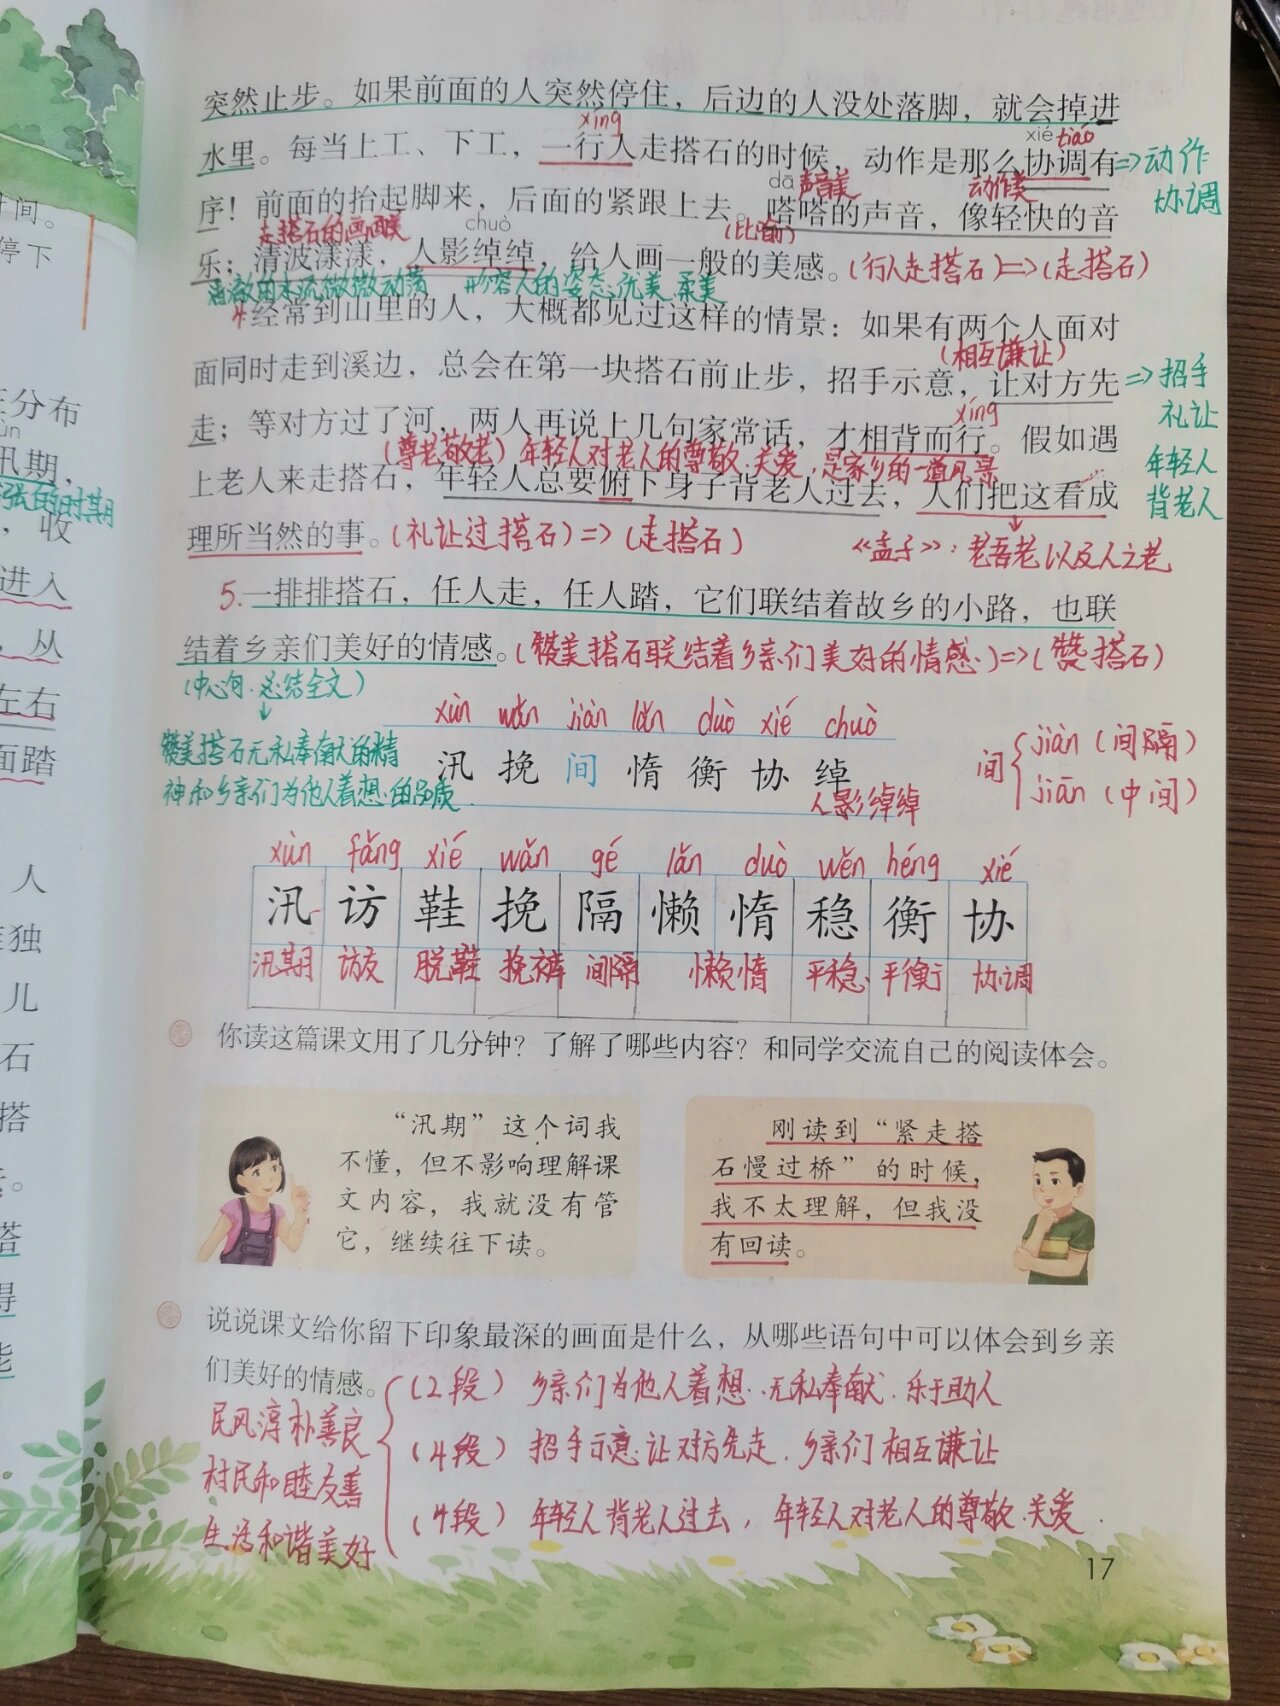 突然止步。如果前面的人突然停住，后边的人没处落脚，就会掉进
xíng
xié tiáo
水里。每当上工、下工，一行人走搭石的时候，动作是那么协调有
=>动作
协调
dā 声音美
动作美
序！前面的抬起脚来，后面的紧跟上去。嗒嗒的声音，像轻快的音
走搭石的画面美
chuò
(比喻)
乐；清波漾漾，人影绰绰，给人画一般的美感。(行人走搭石)=>(走搭石)
形容人的姿态优美.柔美
4.经常到山里的人，大概都见过这样的情景：如果有两个人面对
(相互谦让)
面同时走到溪边，总会在第一块搭石前止步，招手示意，让对方先
=>招手
礼让
xíng
走；等对方过了河，两人再说上几句家常话，才相背而行。假如遇
(尊老敬老)年轻人对老人的尊敬.关爱.是家乡的一道风景
年轻人
背老人
上老人来走搭石，年轻人总要俯下身子背老人过去，人们把这看成
理所当然的事。(礼让过搭石)=>(走搭石)
《孟子》：老吾老以及人之老
5.一排排搭石，任人走，任人踏，它们联结着故乡的小路，也联
结着乡亲们美好的情感。(赞美搭石联结着乡亲们美好的情感.)=>(赞搭石)
(中心句.总结全文)
↓
赞美搭石无私奉献的精
神和乡亲们为他人着想.的品质.
xùn wǎn jiàn lǎn duò xié chuò
汛 挽 间 惰 衡 协 绰
人影绰绰
间{jiàn (间隔)
jiān (中间)
xùn fǎng xié wǎn gé lǎn duò wěn héng xié
汛 访 鞋 挽 隔 懒 惰 稳 衡 协
汛期 访友 脱鞋 挽裤 间隔 懒惰 平稳 平衡 协调
你读这篇课文用了几分钟？了解了哪些内容？和同学交流自己的阅读体会。
“汛期”这个词我
不懂，但不影响理解课
文内容，我就没有管
它，继续往下读。
刚读到“紧走搭
石慢过桥”的时候，
我不太理解，但我没
有回读。
说说课文给你留下印象最深的画面是什么，从哪些语句中可以体会到乡亲
们美好的情感。
民风淳朴善良
村民和睦友善
生活和谐美好
(2段) 乡亲们为他人着想.无私奉献.乐于助人
(4段) 招手示意.让对方先走.乡亲们相互谦让
(4段) 年轻人背老人过去，年轻人对老人的尊敬.关爱.
17
时间。
停下
分布
ùn
汛期，
张的时期
，收
进入
，丛
左右
面踏
人
独
儿
石
搭
。
得
能